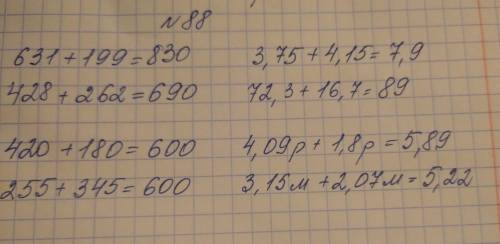 №88
631+199=830
428+262=690
420+180=600
255+345=600
3,75+4,15=7,9
72,3+16,7=89
4,09р+1,8р=5,89
3,15м+2,07м=5,22